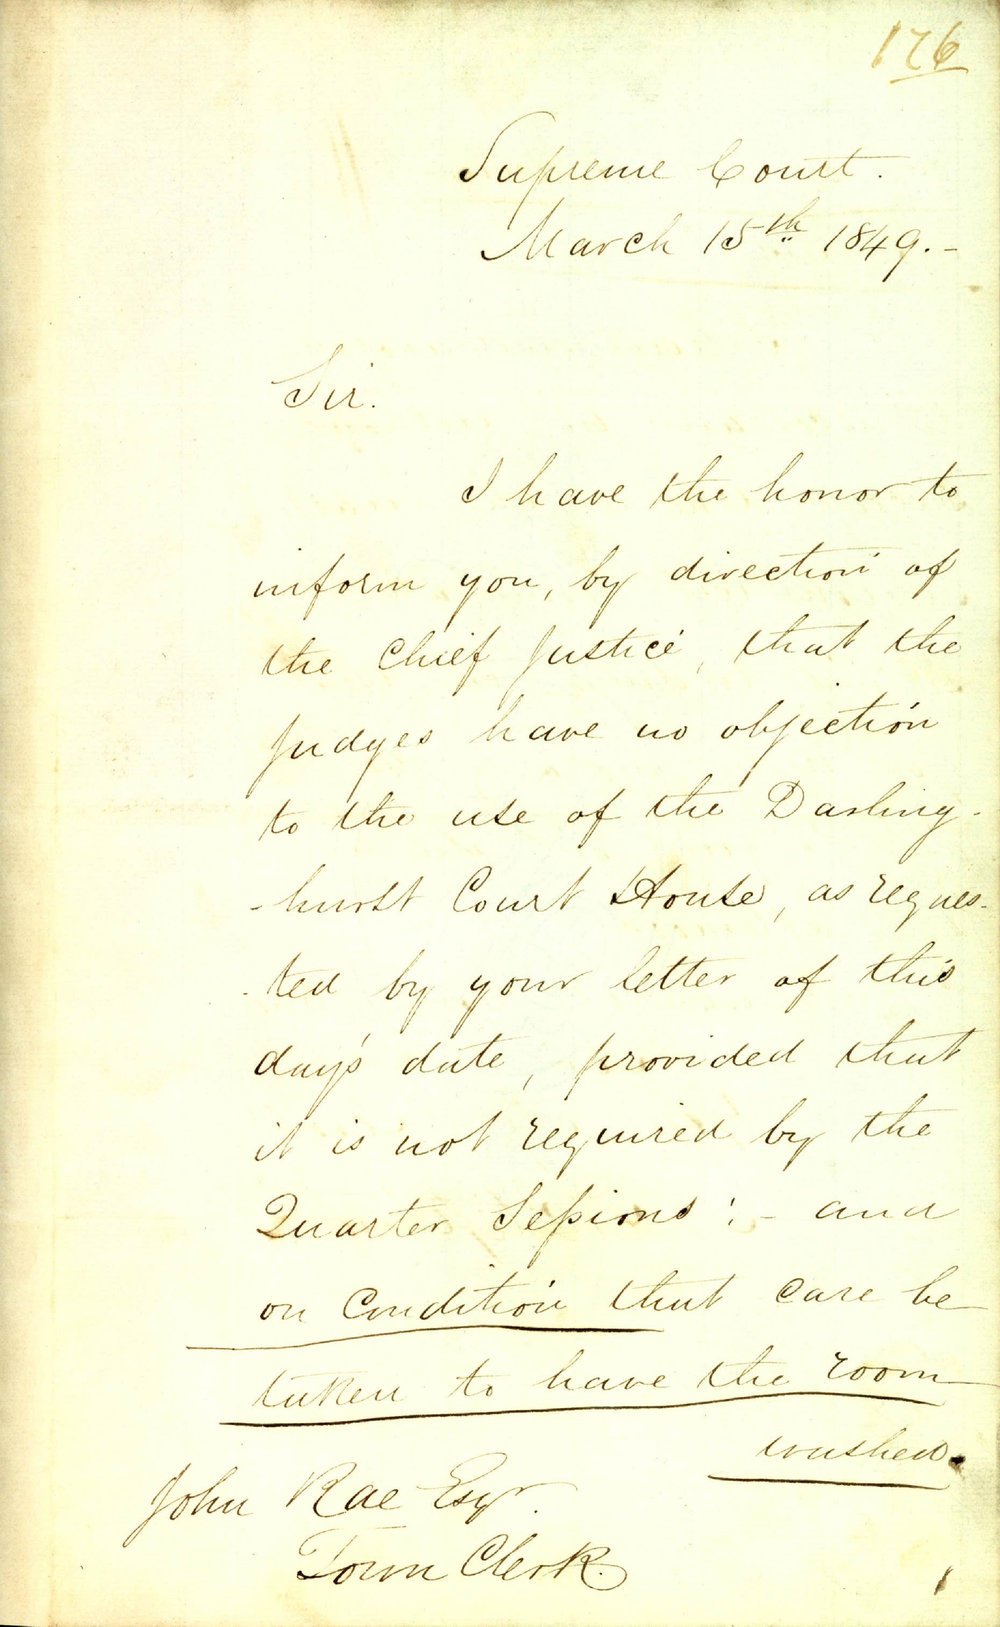 176
Supreme Court.
March 15th 1849.-
Sir.
I have the honor to
inform you, by direction of
the Chief Justice, that the
Judges have no objection
to the use of the Darling-
-hurst Court House, as reques-
-ted by your letter of this
day's date, provided that
it is not required by the
Quarter Sessions:- and
on condition that care be
taken to have the room
washed.
John Rae Esqr.
Town Clerk.